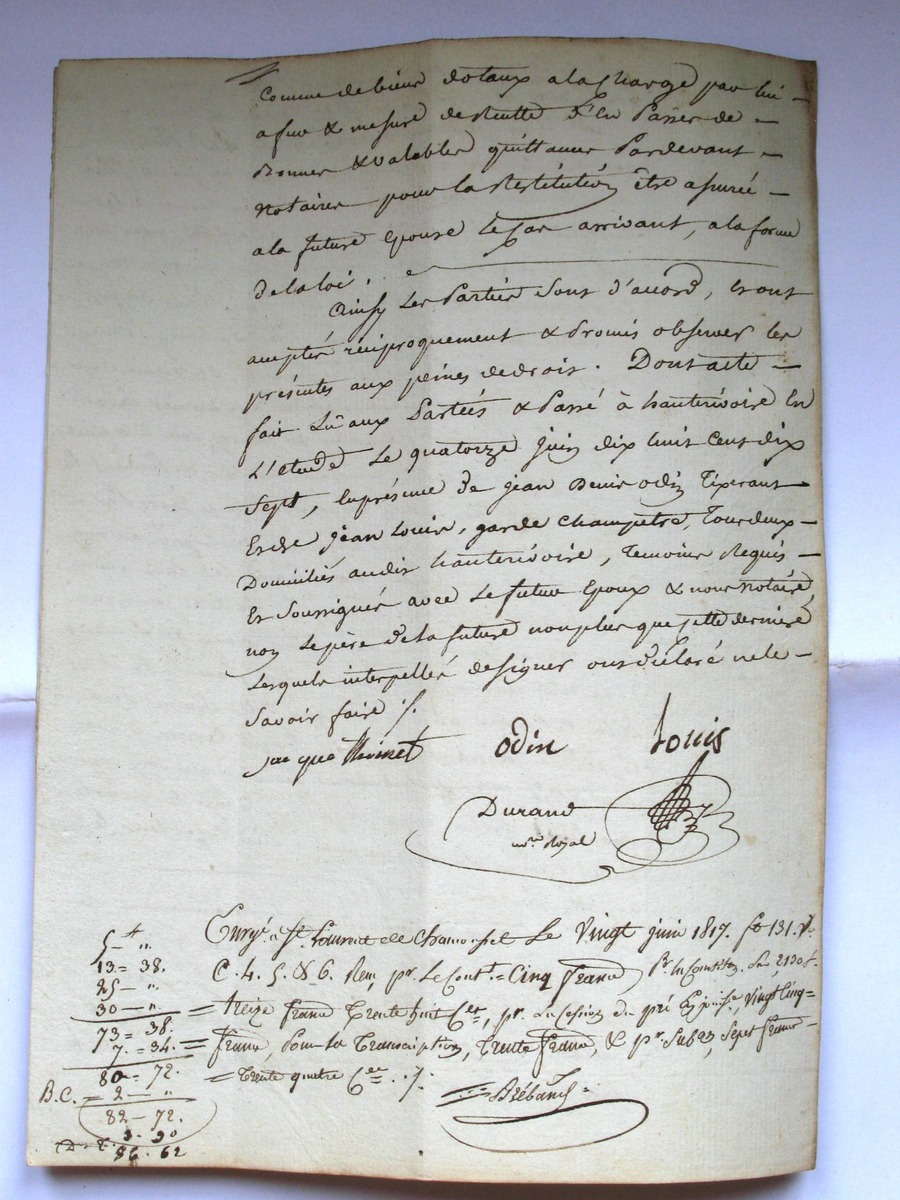 comme de biens dotaux a la charge par lui
a fur & mesure de Reculte d'en Passer de
Bonnes & valables quittances Pardevant
Notaires pour la Restitution être assurée
a la future Epouse le Cas arrivant, a la forme
de la loi.
Ainsy les Parties sont d'accord, et ont
accepté réciproquement & Promis observer les
présentes aux peines de droit. Dont acte
fait Lû aux Parties & Passé à hauterivoire En
L'étude le quatorze juin dix huit Cent dix
Sept, En présence de jean Denis odin Tixerant
Et de jean Louis, garde Champêtre, Tous deux
Domiciliés audit hauterivoire, Temoins Requis
Et Soussignés avec le futur Epoux & nous Notaire,
non le père de la future non plus que cette dernière
Lesquels interpellés de signer ont déclaré ne le
Savoir faire ./.
jacque Thoinet odin Louis
Durand
n.re Royal
Enrg.é à St. Laurent de Chamousset Le Vingt juin 1817. f.o 131. V.o
C. 4. 5. & 6. Reçu pr. Le Cont. = Cinq francs, Pr. la Constiton. de 2130 f.
= treize francs trente huit C.es, pr. la cession du pré, Vingt Cinq =
= francs, Pour la transcription, trente francs, & pr. Subon, Sept francs
= trente quatre C.es ./.
Brébant
5 — "
13 = 38.
25 — "
30 — "
73 = 38.
7. = 34.
80 = 72.
B.C. = 2 — "
82 — 72.
3. 90
86. 62